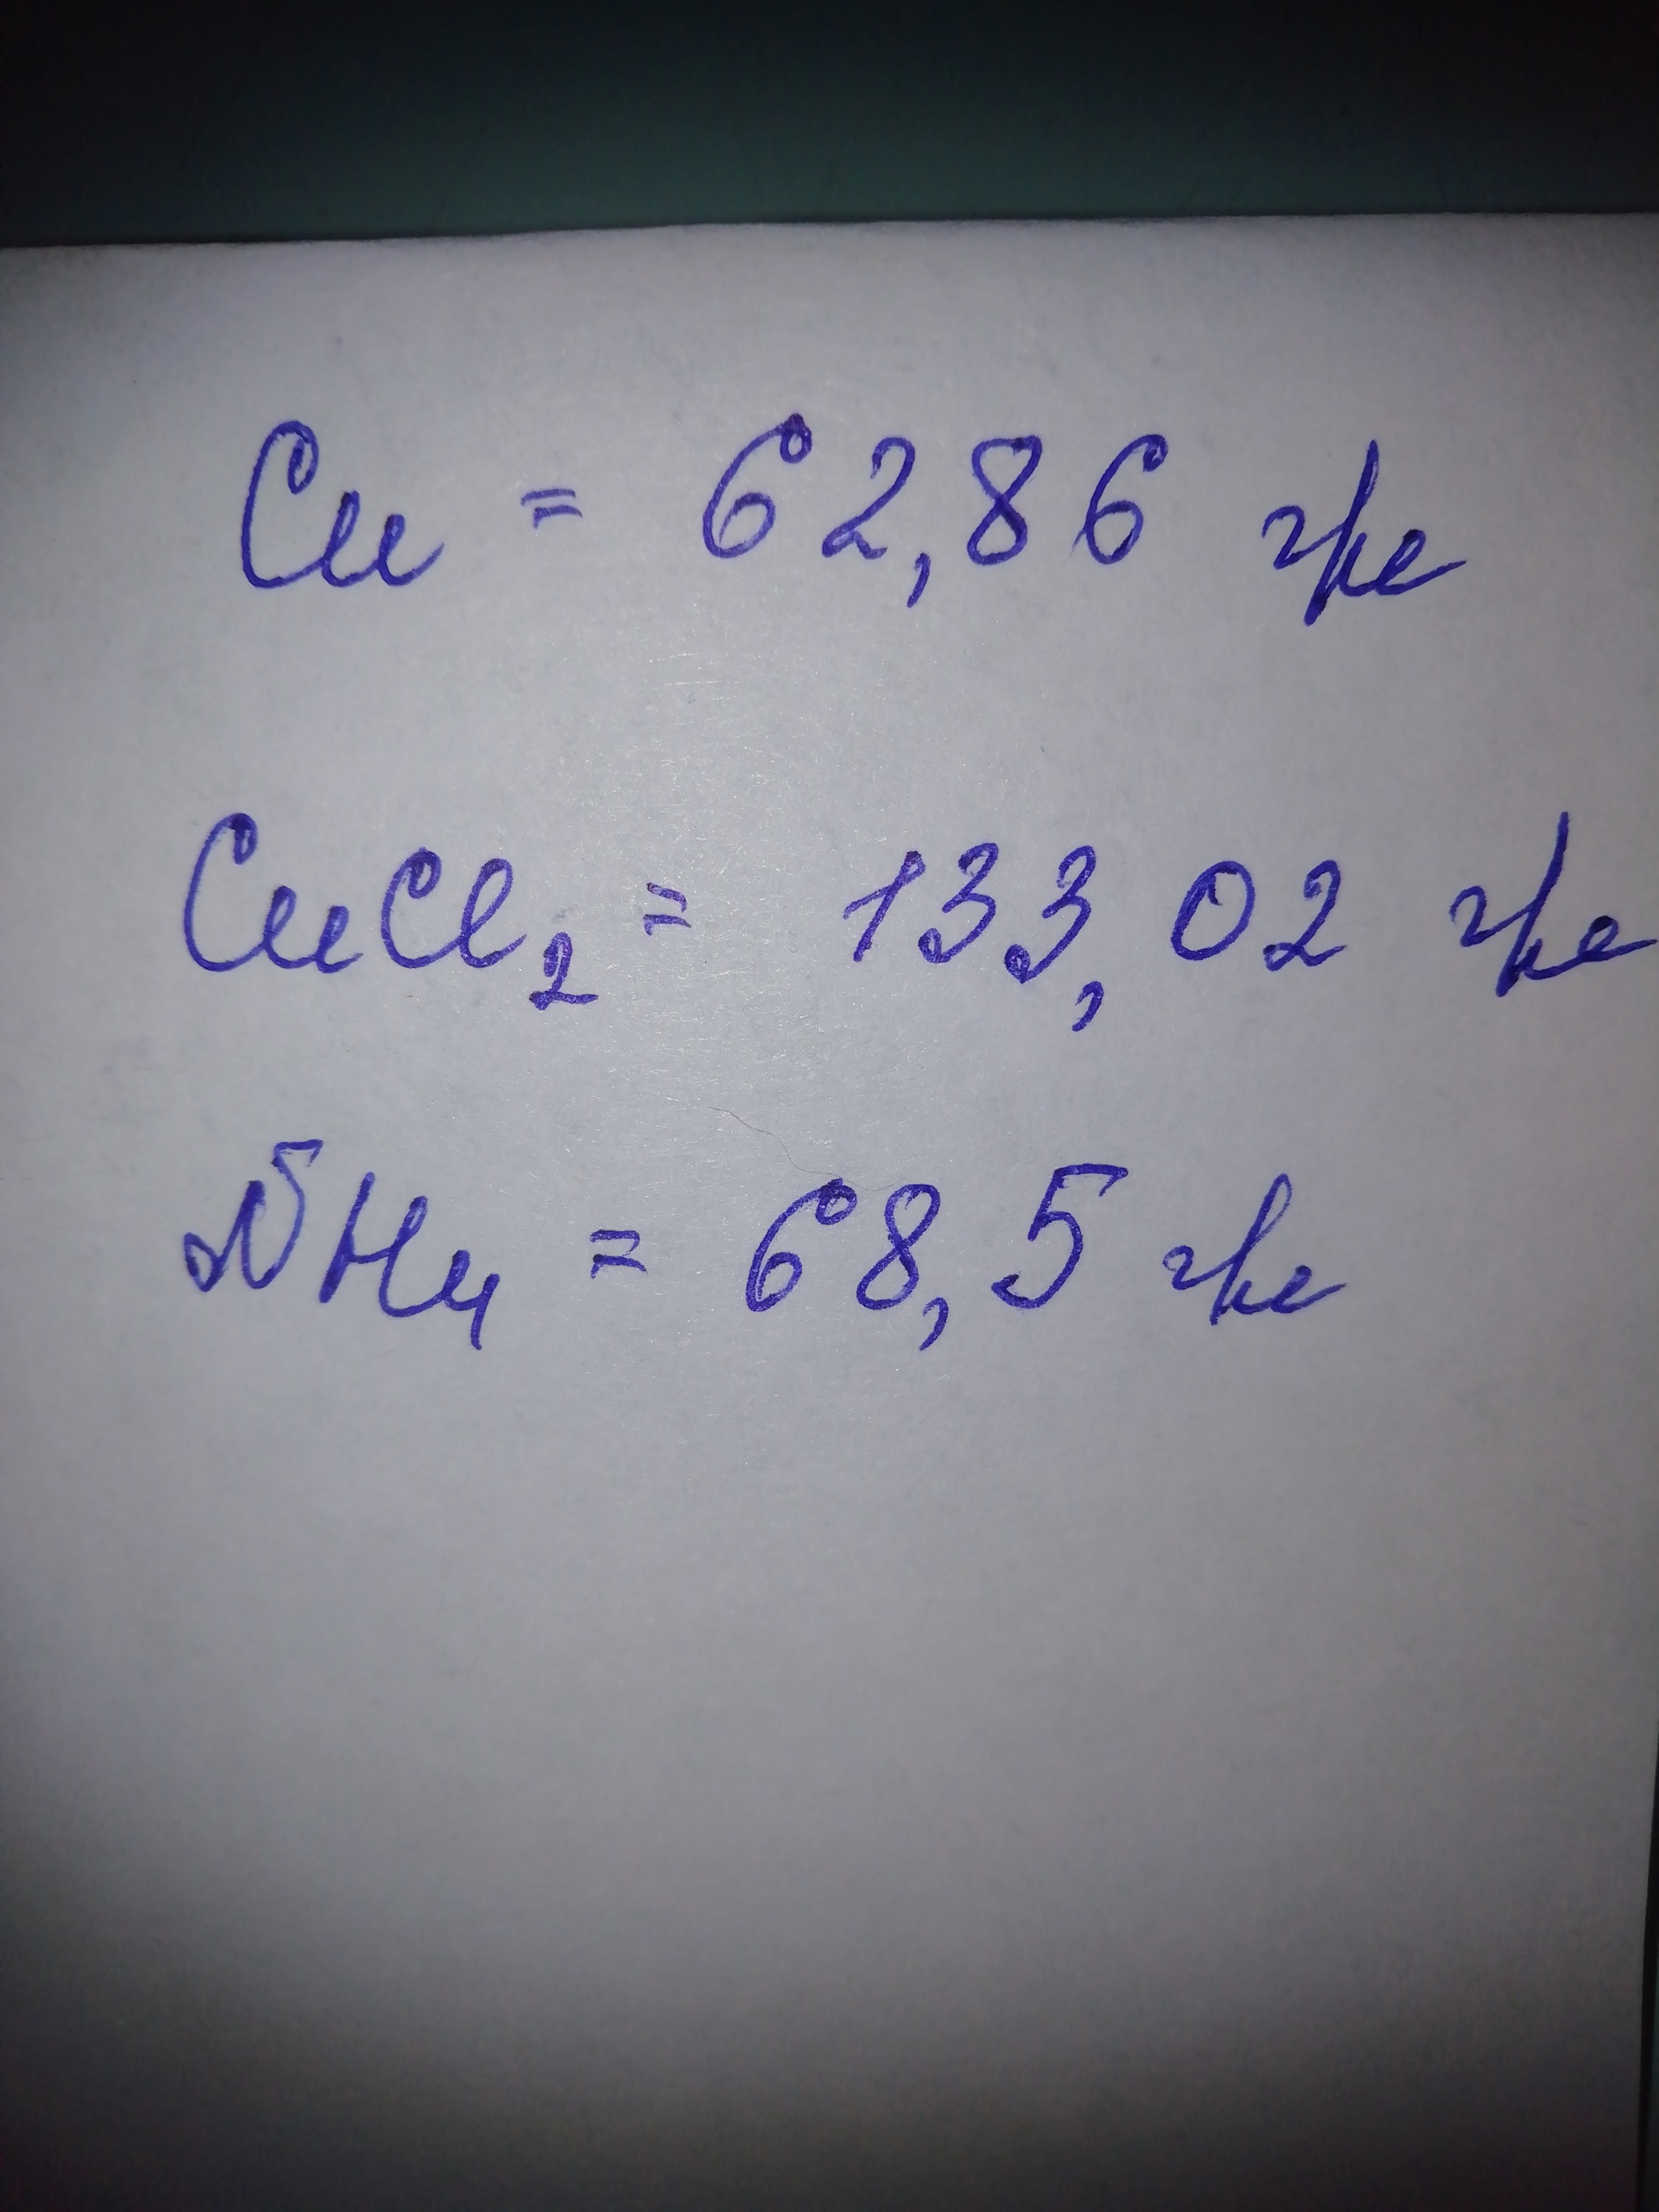 Cu = 62,86 г/л
CuCl₂ = 133,02 г/л
NH₄ = 68,5 г/л